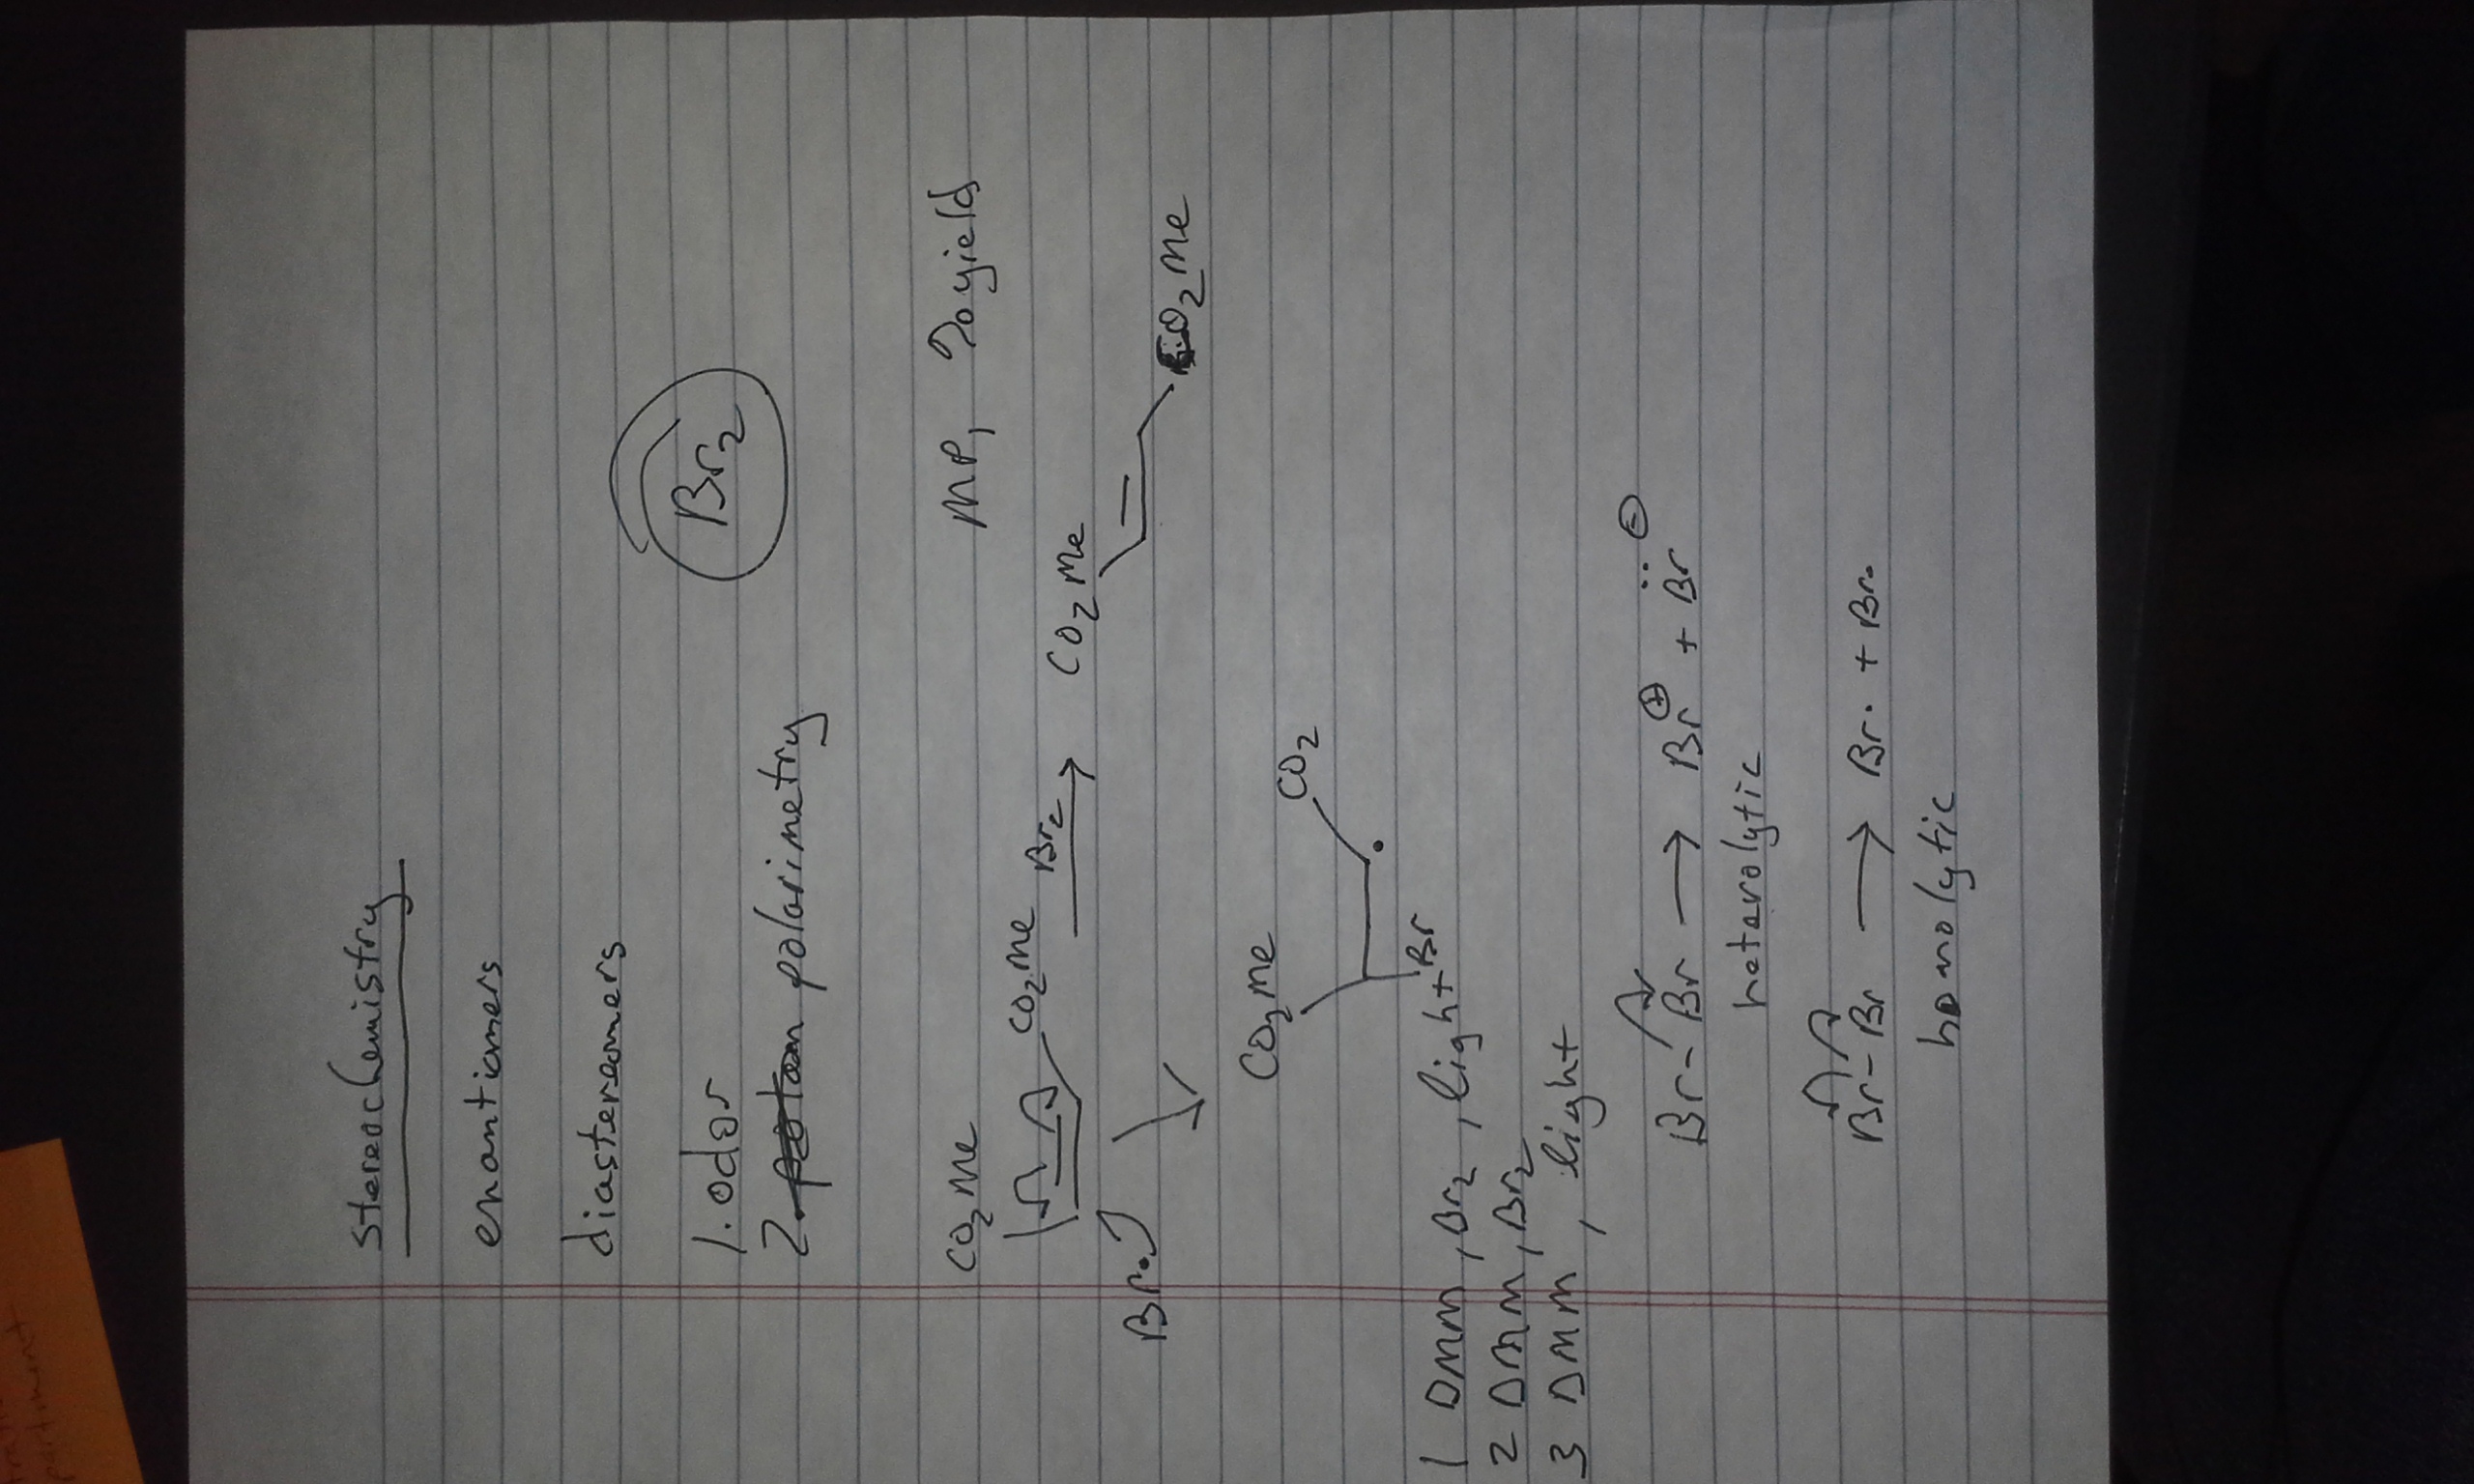 stereochemistry
enantiomers
diastereomers
1. odor
2. polarimetry
Br2
MP, % yield
CO2Me
CO2Me Br2 → CO2Me
CO2Me
Br·
CO2Me CO2
Br
1 DMM, Br2, light
2 DMM, Br2
3 DMM, light
Br-Br → Br⊕ + Br:⊖
heterolytic
Br-Br → Br· + Br·
homolytic